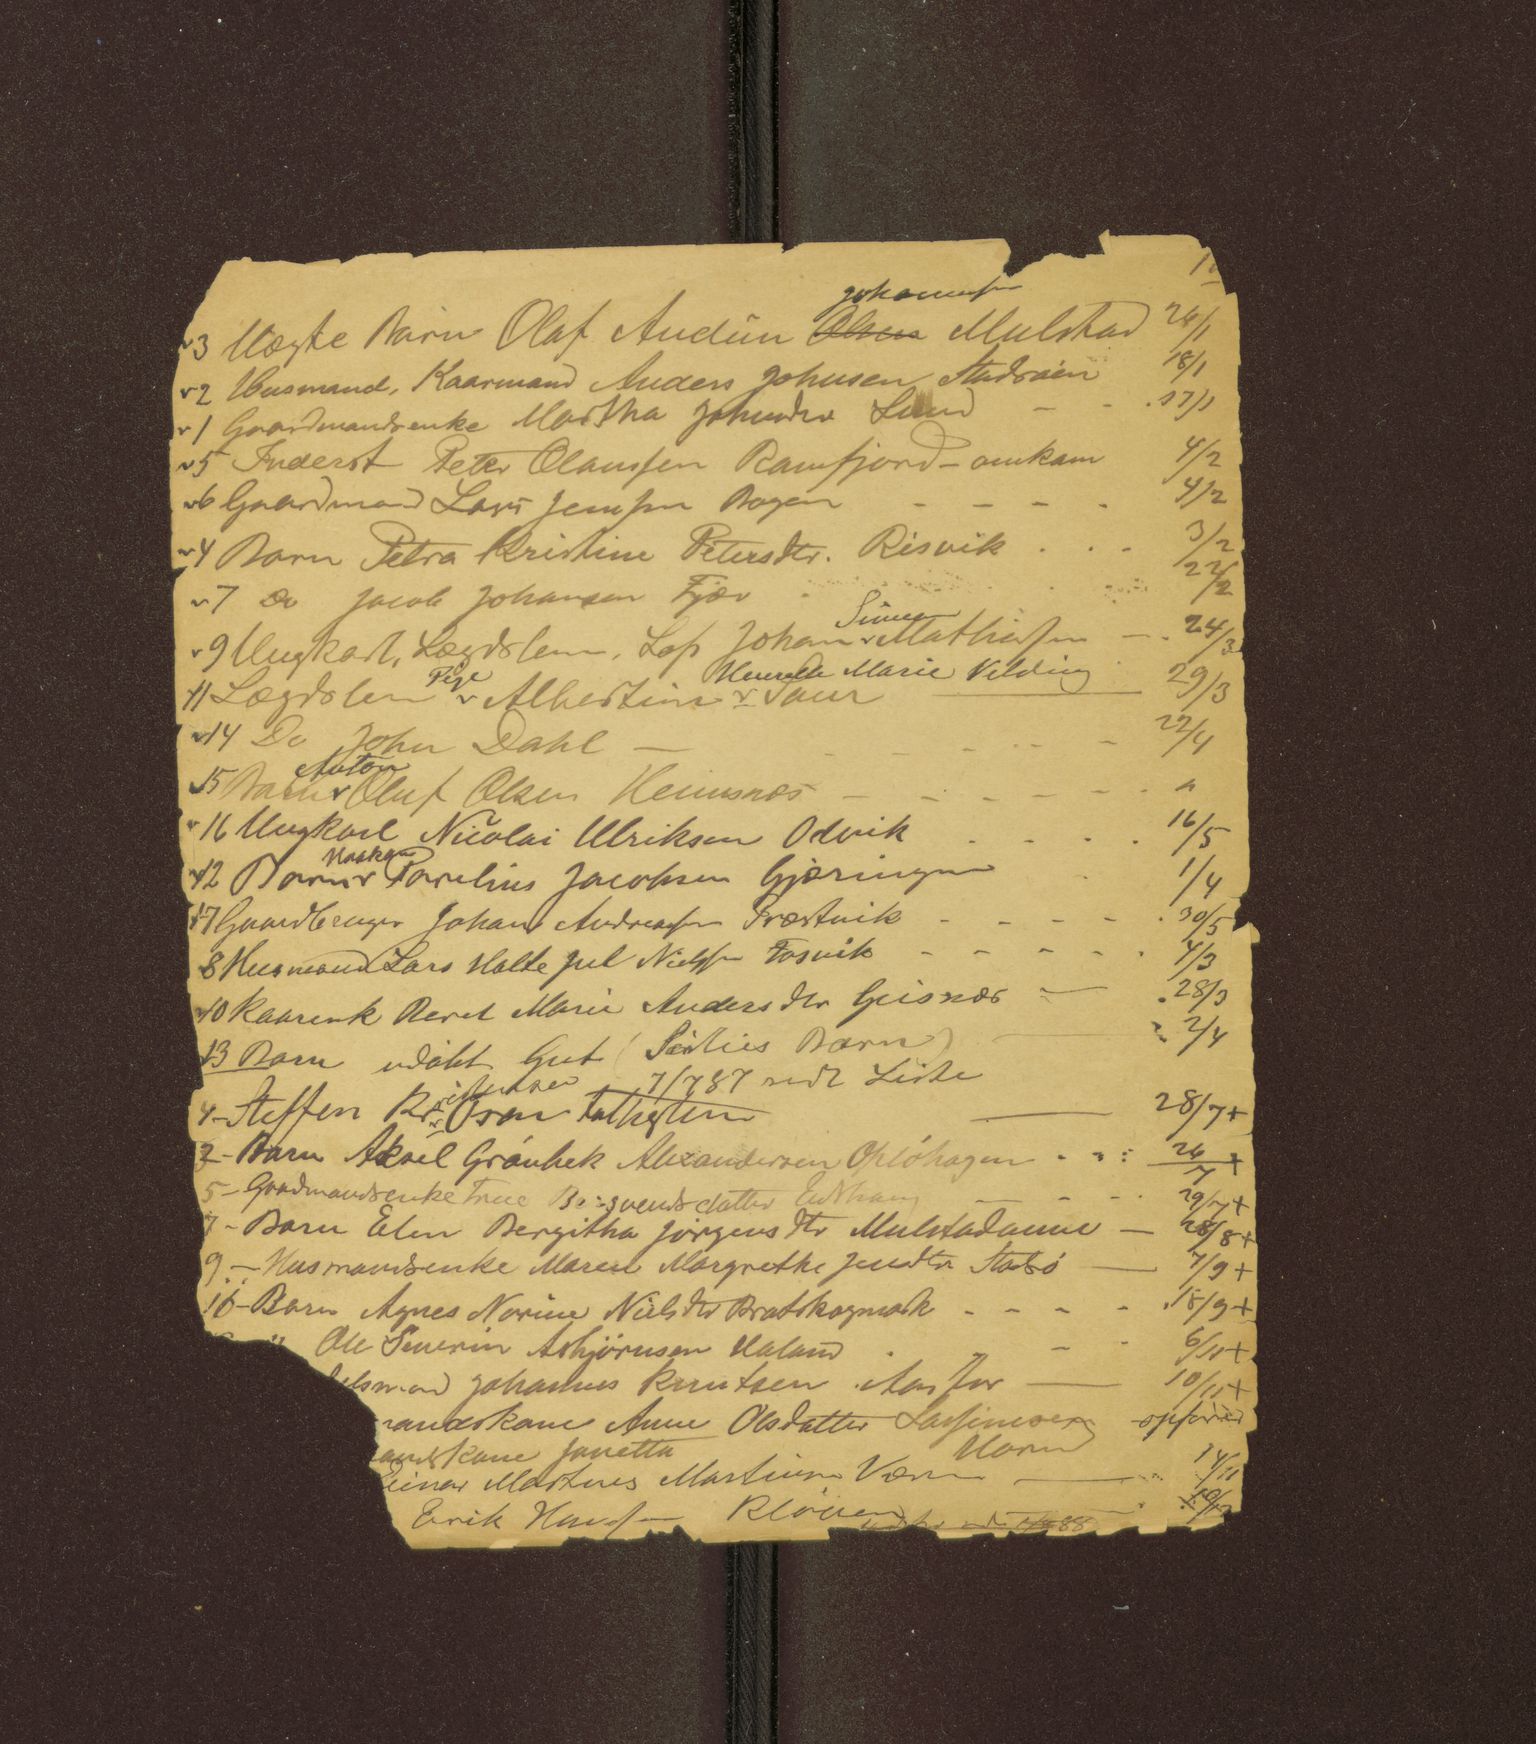 Johannessen
v3 Uægte Barn Olaf Audun Olsen Mulstad 24/1
v2 Husmand, Kaarmand Anders Johnsen Stadsøien 18/1
v1 Gaardmandsenke Martha Johnsdtr Lund - - 17/1
v5 Inderst Peter Olaussen Ramfjord - omkam 4/2
v6 Gaardmand Lars Jensen Bogen - - - - 4/2
v4 Barn Petra Kristine Petersdtr. Risvik . . . 3/2
v7 Do Jacob Johansen Fjær 22/2
Simon
v9 Ungkarl, Lægdslem, Lap Johan v Mathissen - . 24/3
Pige Marie Vilding
11 Lægdslem v Albertine v 29/3
v14 Do John Dahl - - - - - 22/4
Anton
15 Barn v Oluf Olsen Hemsnæs - - - - - - "
v16 Ungkarl Nicolai Ulriksen Odvik . . . . 16/5
Haakon
12 Barn v Parelius Jacobsen Gjæringen 1/4
17 Gaardbruger Johan Andreassen Præstvik - - - - . 30/5
8 Husmand Lars Holte Jul Nielssen Fosvik - - - - . 4/3
10 Kaarenk Beret Marie Andersdtr Geisnæs - . 28/3
13 Barn udøbt Gut ( Barn ) 2/4
7/7 87 sidt Liste
4 - Steffen 28/7 +
2 - Barn Aksel Grønbek Alexandersen Opløhagen - - : 26/7 +
5 - Gaardmandsenke - - - . 29/7 +
7 - Barn Elen Bergitha Jörgensdtr Mulstadaune - 28/8 +
9 - Husmandsenke Maren Margrethe Jensdtr - 7/9 +
16 - Barn Agnes Norine Nielsdtr Bratskogmark - - - - . 18/9 +
" Ole Severin Asbjörnsen Haland . - - - 6/11 +
Johannes Knutsen - 10/11 +
mandskane Anne Olsdatter opført
andskane Janetta Horn
Einar Martinus Martinsen Værn - 14/11
Erik Hansen Kløven